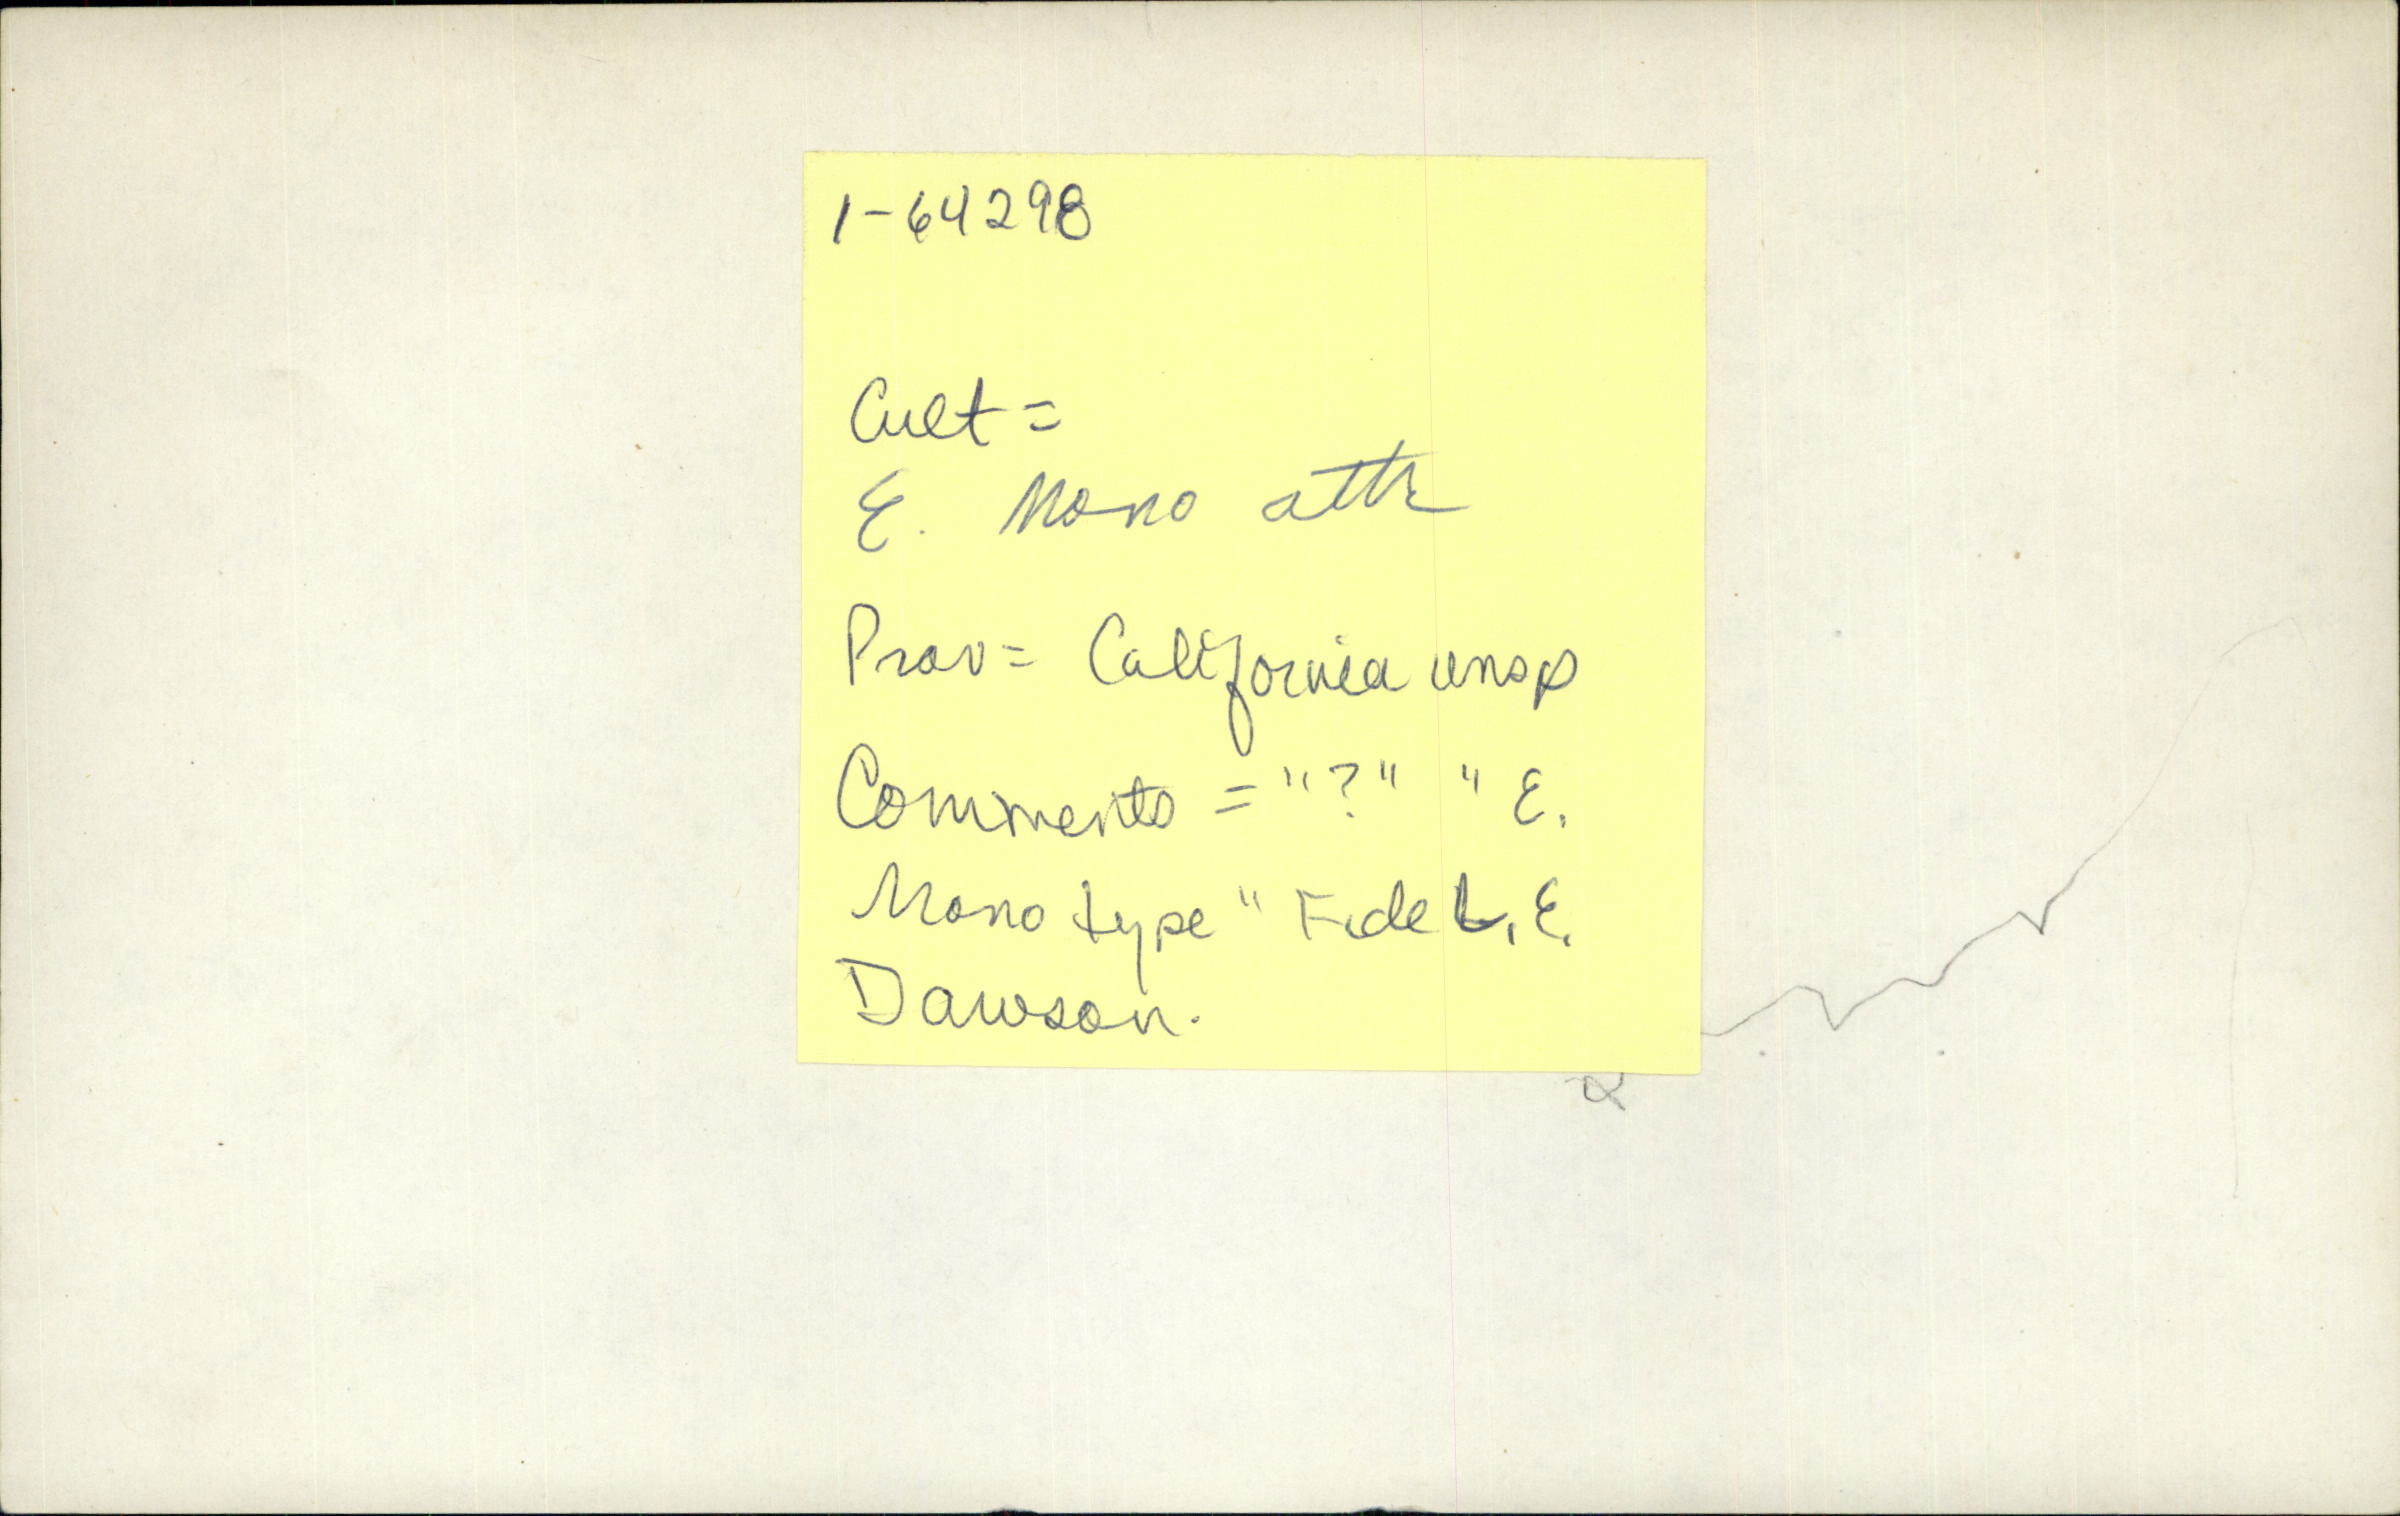 1-64298
Cult =
E. Mono attr
Prov = California unsp
Comments = "?" "E.
Mono type" Fide L.E.
Dawson.